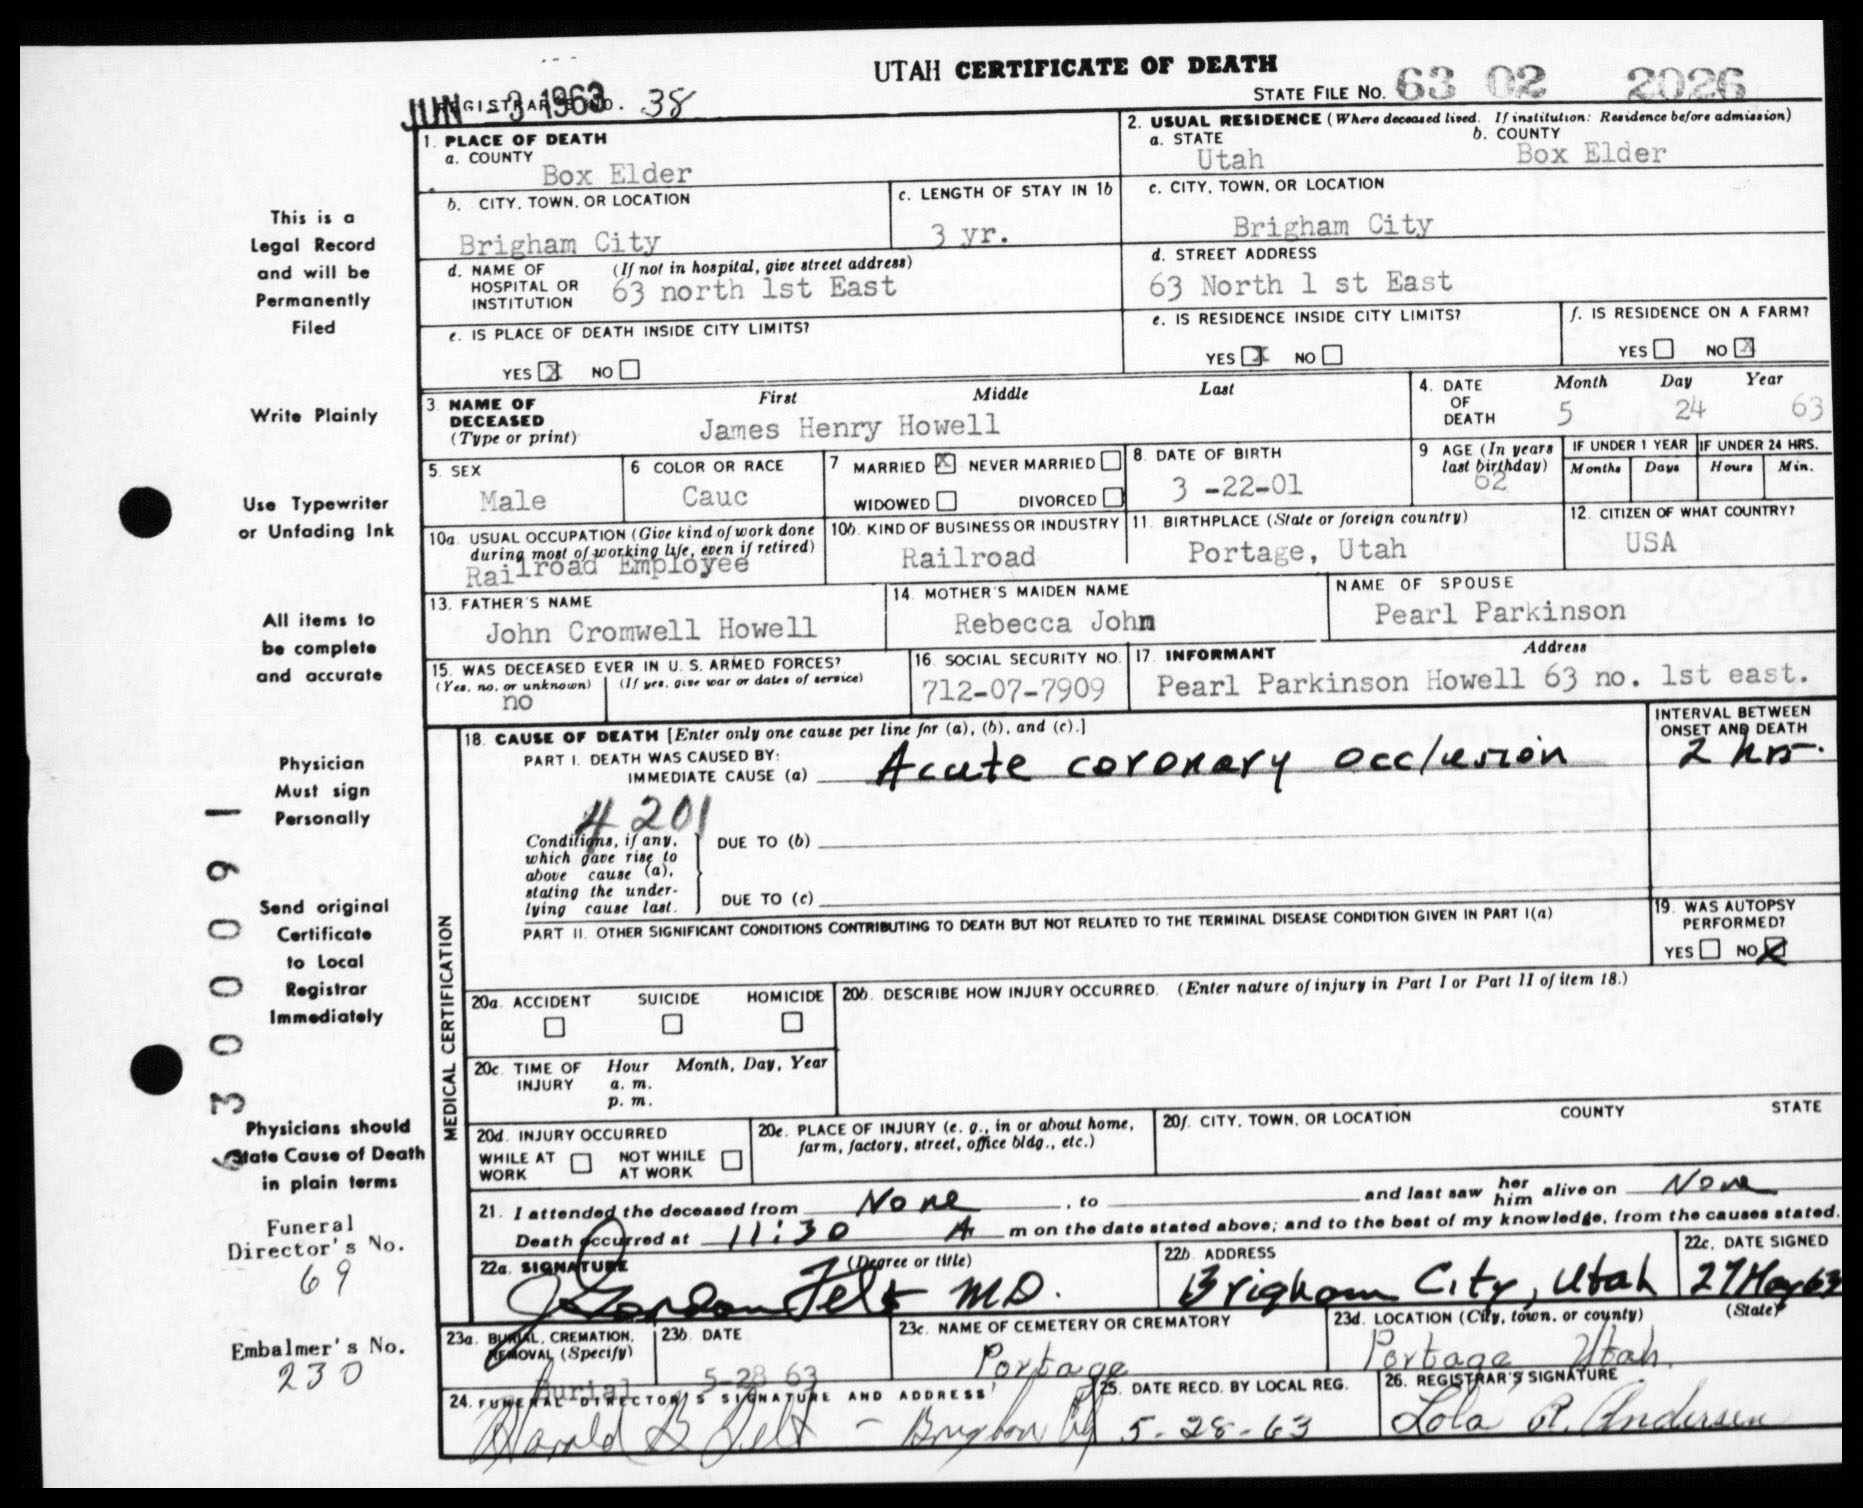 UTAH CERTIFICATE OF DEATH
STATE FILE NO. 63 02 2026
JUN -3 1963
REGISTRAR'S NO. 38
1. PLACE OF DEATH
a. COUNTY
Box Elder
2. USUAL RESIDENCE (Where deceased lived. If institution: Residence before admission)
a. STATE
Utah
b. COUNTY
Box Elder
b. CITY, TOWN, OR LOCATION
Brigham City
c. LENGTH OF STAY IN 1b
3 yr.
c. CITY, TOWN, OR LOCATION
Brigham City
d. NAME OF HOSPITAL OR INSTITUTION
(If not in hospital, give street address)
63 north 1st East
d. STREET ADDRESS
63 North 1 st East
e. IS PLACE OF DEATH INSIDE CITY LIMITS?
YES X NO
e. IS RESIDENCE INSIDE CITY LIMITS?
YES X NO
f. IS RESIDENCE ON A FARM?
YES NO X
3. NAME OF DECEASED (Type or print)
First Middle Last
James Henry Howell
4. DATE OF DEATH
Month Day Year
5 24 63
5. SEX
Male
6 COLOR OR RACE
Cauc
7 MARRIED X NEVER MARRIED
WIDOWED DIVORCED
8. DATE OF BIRTH
3 -22-01
9 AGE (In years last birthday)
62
IF UNDER 1 YEAR
Months Days
IF UNDER 24 HRS.
Hours Min.
10a. USUAL OCCUPATION (Give kind of work done during most of working life, even if retired)
Railroad Employee
10b. KIND OF BUSINESS OR INDUSTRY
Railroad
11. BIRTHPLACE (State or foreign country)
Portage, Utah
12. CITIZEN OF WHAT COUNTRY?
USA
13. FATHER'S NAME
John Cromwell Howell
14. MOTHER'S MAIDEN NAME
Rebecca John
NAME OF SPOUSE
Pearl Parkinson
15. WAS DECEASED EVER IN U. S. ARMED FORCES?
(Yes, no, or unknown) (If yes, give war or dates of service)
no
16. SOCIAL SECURITY NO.
712-07-7909
17. INFORMANT Address
Pearl Parkinson Howell 63 no. 1st east.
MEDICAL CERTIFICATION
18. CAUSE OF DEATH [Enter only one cause per line for (a), (b), and (c).]
PART I. DEATH WAS CAUSED BY:
IMMEDIATE CAUSE (a) Acute coronary occlusion
INTERVAL BETWEEN ONSET AND DEATH
2 hrs.
4201
Conditions, if any, which gave rise to above cause (a), stating the underlying cause last.
DUE TO (b)
DUE TO (c)
PART II. OTHER SIGNIFICANT CONDITIONS CONTRIBUTING TO DEATH BUT NOT RELATED TO THE TERMINAL DISEASE CONDITION GIVEN IN PART I(a)
19. WAS AUTOPSY PERFORMED?
YES NO X
20a. ACCIDENT SUICIDE HOMICIDE
20b. DESCRIBE HOW INJURY OCCURRED. (Enter nature of injury in Part I or Part II of item 18.)
20c. TIME OF INJURY
Hour Month, Day, Year
a. m.
p. m.
20d. INJURY OCCURRED
WHILE AT WORK
NOT WHILE AT WORK
20e. PLACE OF INJURY (e. g., in or about home, farm, factory, street, office bldg., etc.)
20f. CITY, TOWN, OR LOCATION COUNTY STATE
21. I attended the deceased from None , to and last saw her him alive on None
Death occurred at 11:30 A m on the date stated above; and to the best of my knowledge, from the causes stated.
22a. SIGNATURE (Degree or title)
J Gordon Felt M.D.
22b. ADDRESS
Brigham City, Utah
22c. DATE SIGNED
27 May 63
23a. BURIAL, CREMATION, REMOVAL (Specify)
Burial
23b DATE
5-28 63
23c. NAME OF CEMETERY OR CREMATORY
Portage
23d. LOCATION (City, town, or county) (State)
Portage Utah.
24. FUNERAL DIRECTOR'S SIGNATURE AND ADDRESS
Harold B Felt - Brigham City
25. DATE RECD. BY LOCAL REG.
5-28-63
26. REGISTRAR'S SIGNATURE
Lola R. Andersen
This is a
Legal Record
and will be
Permanently
Filed
Write Plainly
Use Typewriter
or Unfading Ink
All items to
be complete
and accurate
Physician
Must sign
Personally
Send original
Certificate
to Local
Registrar
Immediately
Physicians should
State Cause of Death
in plain terms
Funeral
Director's No.
69
Embalmer's No.
230